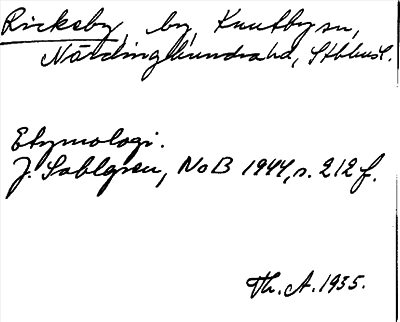 Ricksby, by, Knutby sn,
Närdinghundra hd, Sthlms l.
Etymologi.
J. Sahlgren, NoB 1944, s. 212 f.
Th. A. 1955.